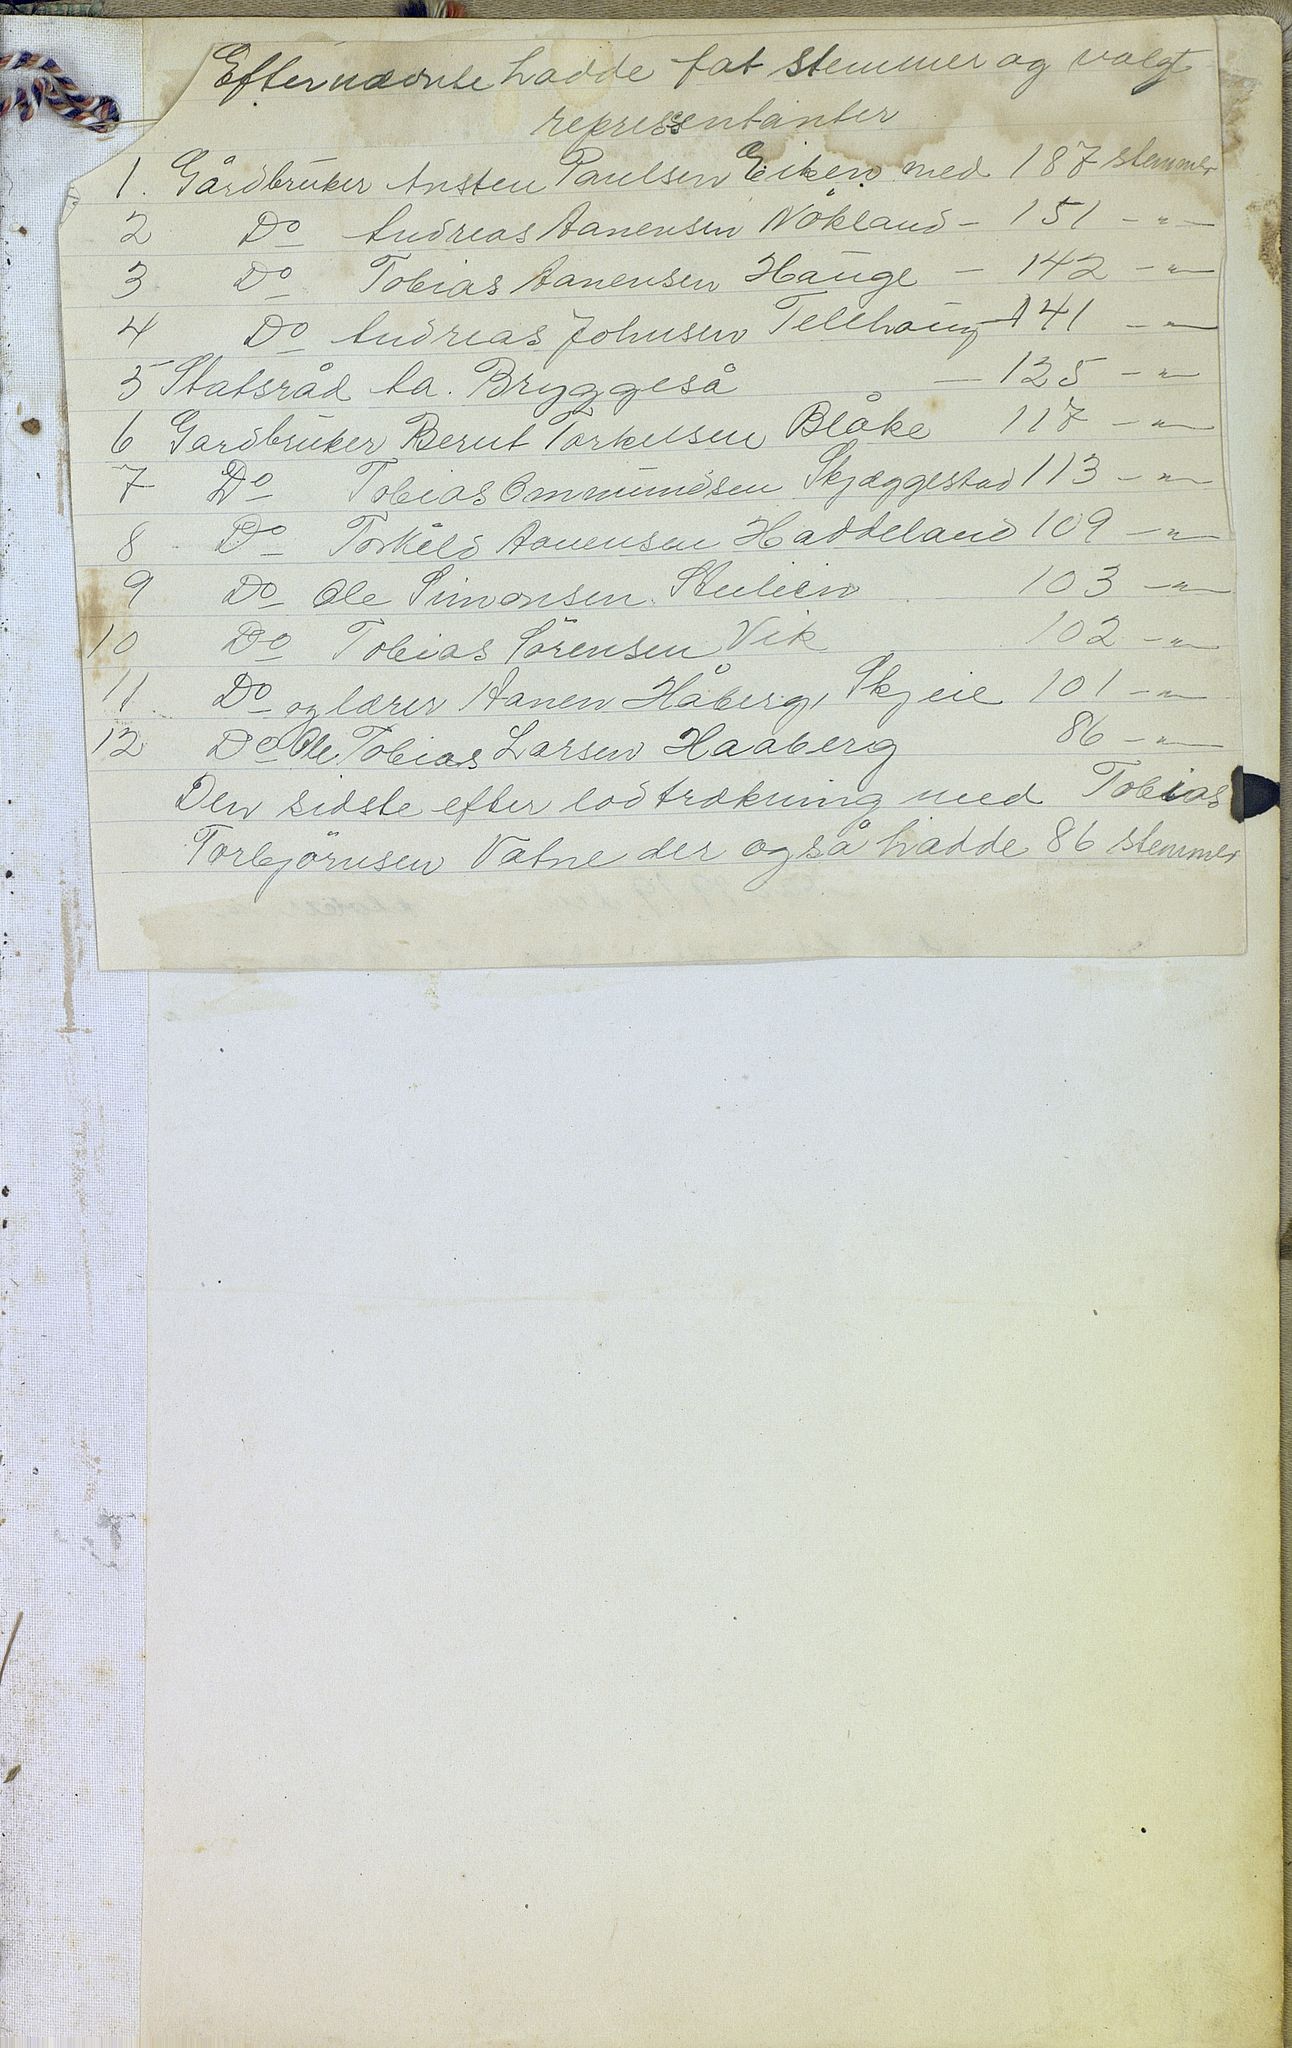 Efternævnte hadde fat stemmer og valgt
representanter
1. Gårdbruker Ansten Paulsen Eiken med 187 stemmer
2 Do Andreas Aanensen Nökland - 151 - " -
3 Do Tobias Aanensen Hauge - 142 - " -
4 Do Andreas Johnsen Tellhaug 141 - " -
5 Statsråd Aa. Bryggeså - 125 - " -
6 Gardbruker Bernt Torkelsen Blåke 117 - " -
7 Do Tobias Ommundsen Skjæggestad 113 - " -
8 Do Torkeld Aanensen Haddeland 109 - " -
9 Do Ole Simonsen 103 - " -
10 Do Tobias Sörensen Vik 102 - " -
11 Do og lærer Aanen Håberg, Skjeie 101 - " -
12 Do Ole Tobias Larsen Haaberg 86 - " -
Den sidste efter lodtrækning med Tobias
Torbjörnsen Vatne der også hadde 86 stemmer